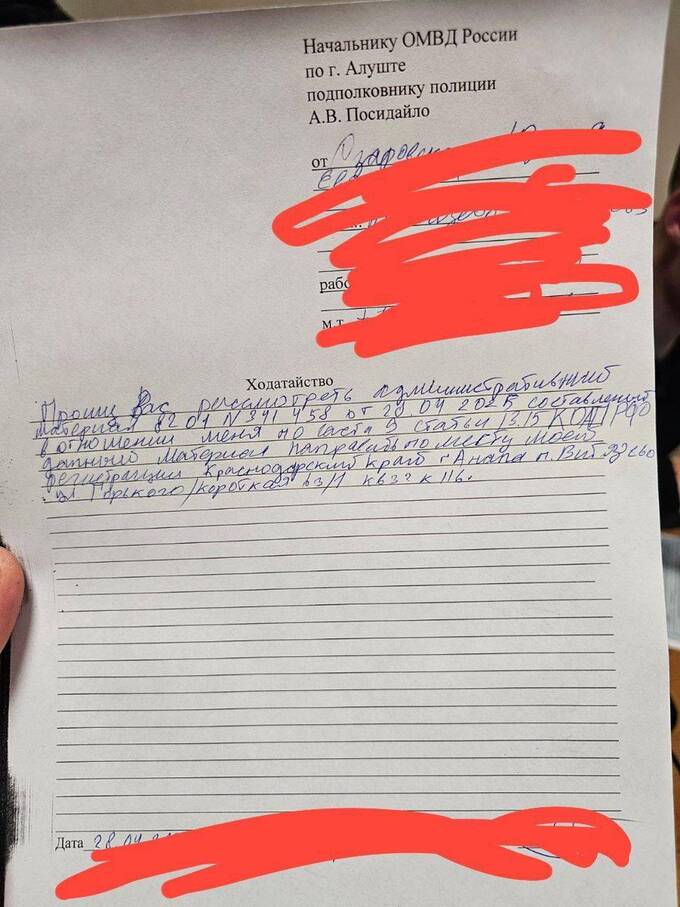 Начальнику ОМВД России
по г. Алуште
подполковнику полиции
А.В. Посидайло
от
рабо
м.т.
Ходатайство
Прошу Вас рассмотреть административный
материал 82 01 N 391458 от 28.04 2025 составлений
в отношении меня по части 3 статьи 13.15 КОАП РФ
данный материал направить по месту моей
регистрации Краснодарский край г Анапа п. Витязево
ул Горького/короткая
Дата 28.04